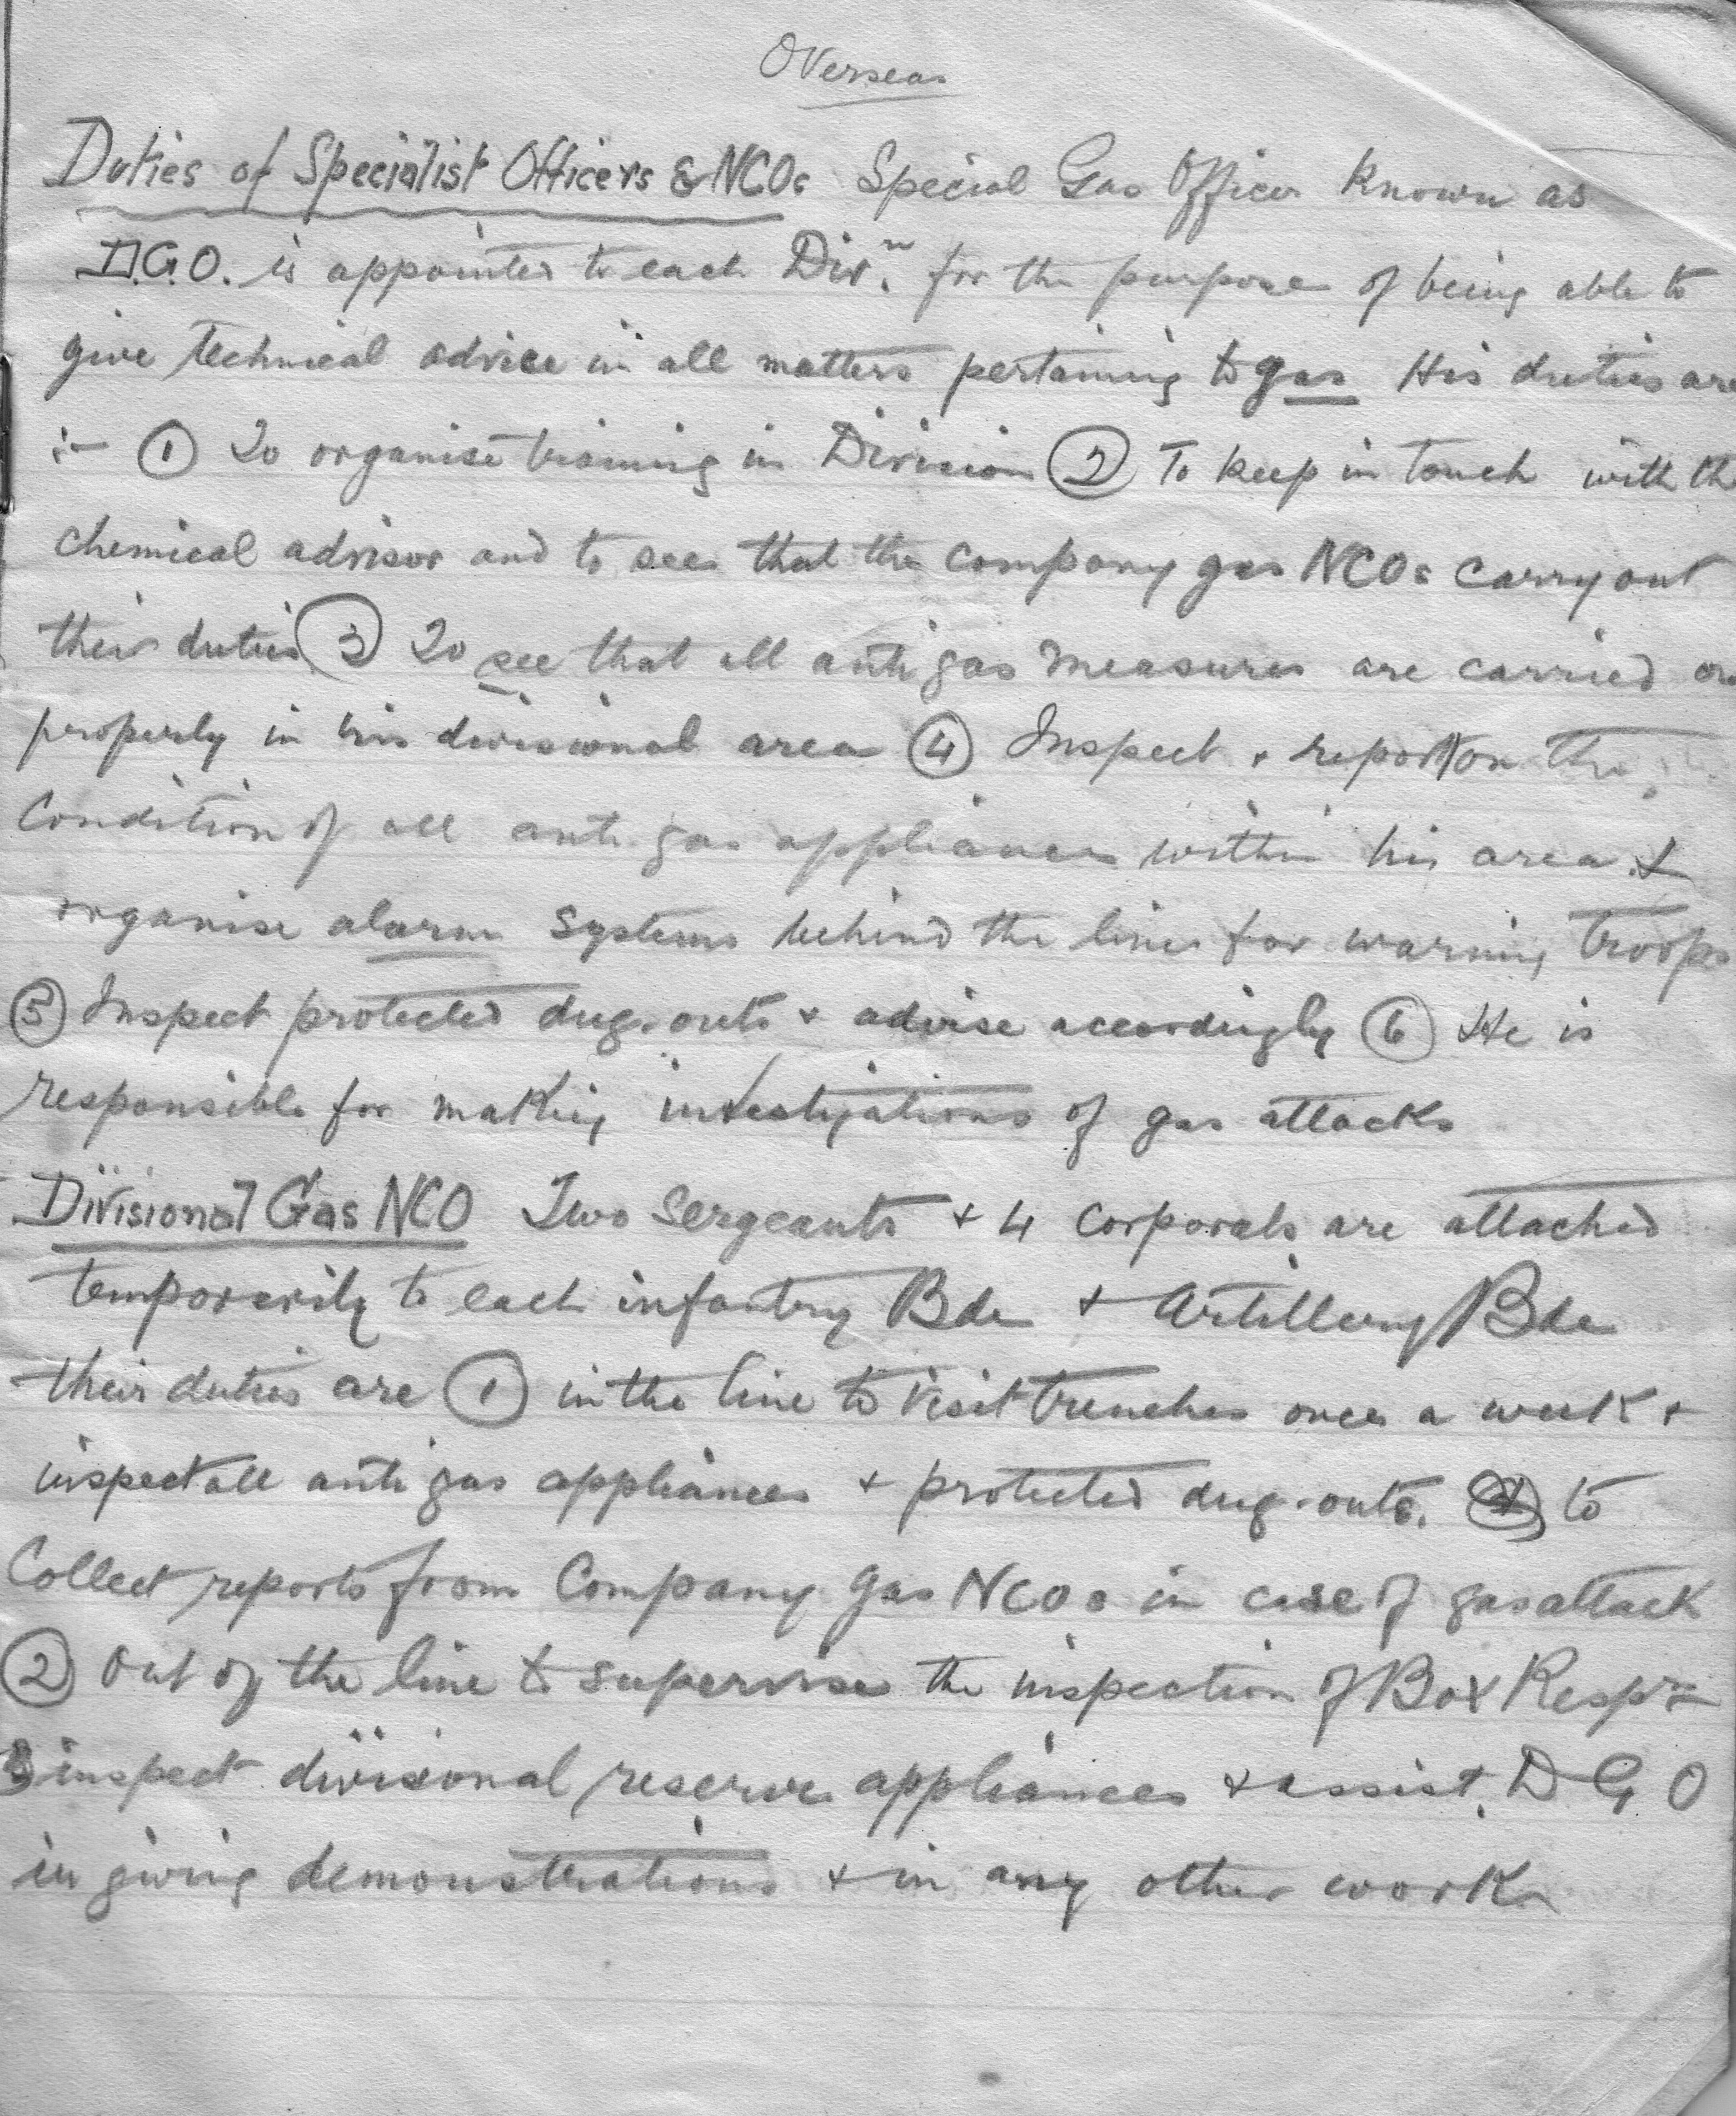 Overseas
Duties of Specialist Officers & NCOs Special Gas Officer known as
D.G.O. is appointed to each Divn. for the purpose of being able to
give technical advice in all matters pertaining to gas His duties are
:- ① To organise training in Division ② To keep in touch with the
chemical advisor and to see that the company gas NCOs carry out
their duties ③ To see that all anti gas measures are carried ou
properly in his divisional area ④ Inspect + report on the
Condition of all anti gas appliances within his area &
organise alarm systems behind the lines for warning troops
⑤ Inspect protected dug-outs + advise accordingly ⑥ He is
responsible for making investigations of gas attacks
Divisional Gas NCO Two Sergeants + 4 Corporals are attached
temporarily to each infantry Bde + Artillery Bde
their duties are ① in the line to visit trenches once a week +
inspect all anti gas appliances + protected dug-outs. to
Collect reports from Company Gas NCOs in case of gas attack
② Out of the line to supervise the inspection of Box Resprs
inspect divisional reserve appliances + assist D G O
in giving demonstrations + in any other work